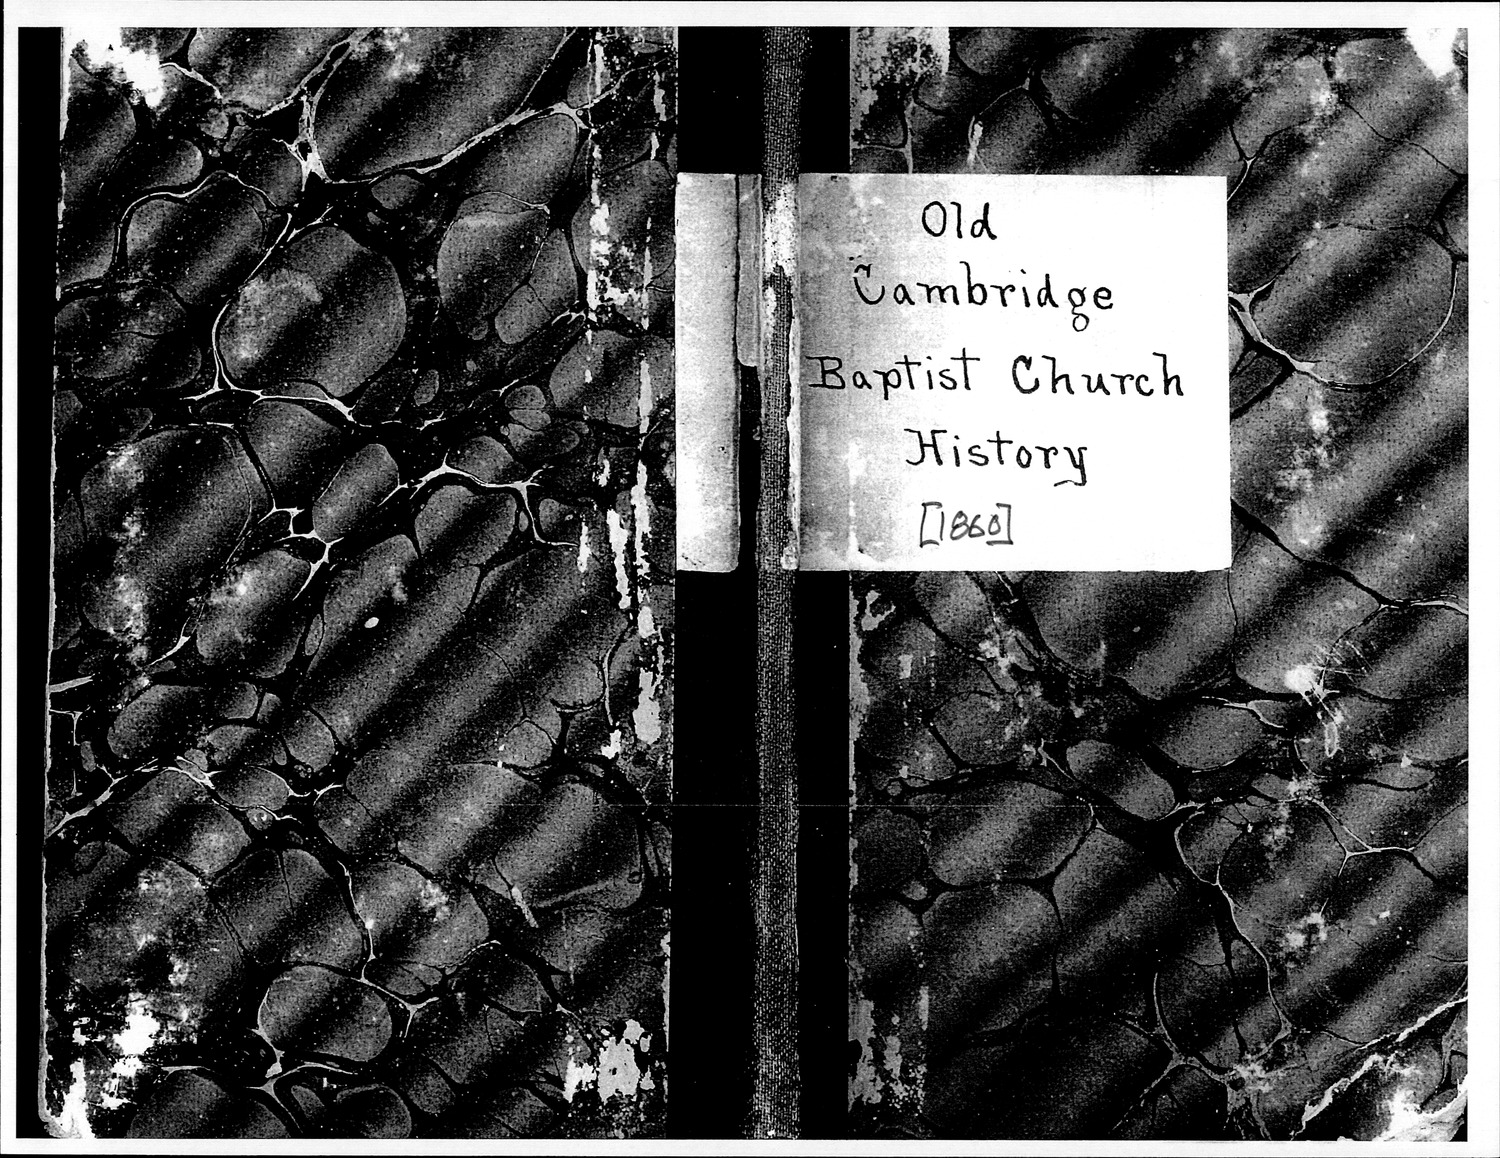 Old
Cambridge
Baptist Church
History
[1860]